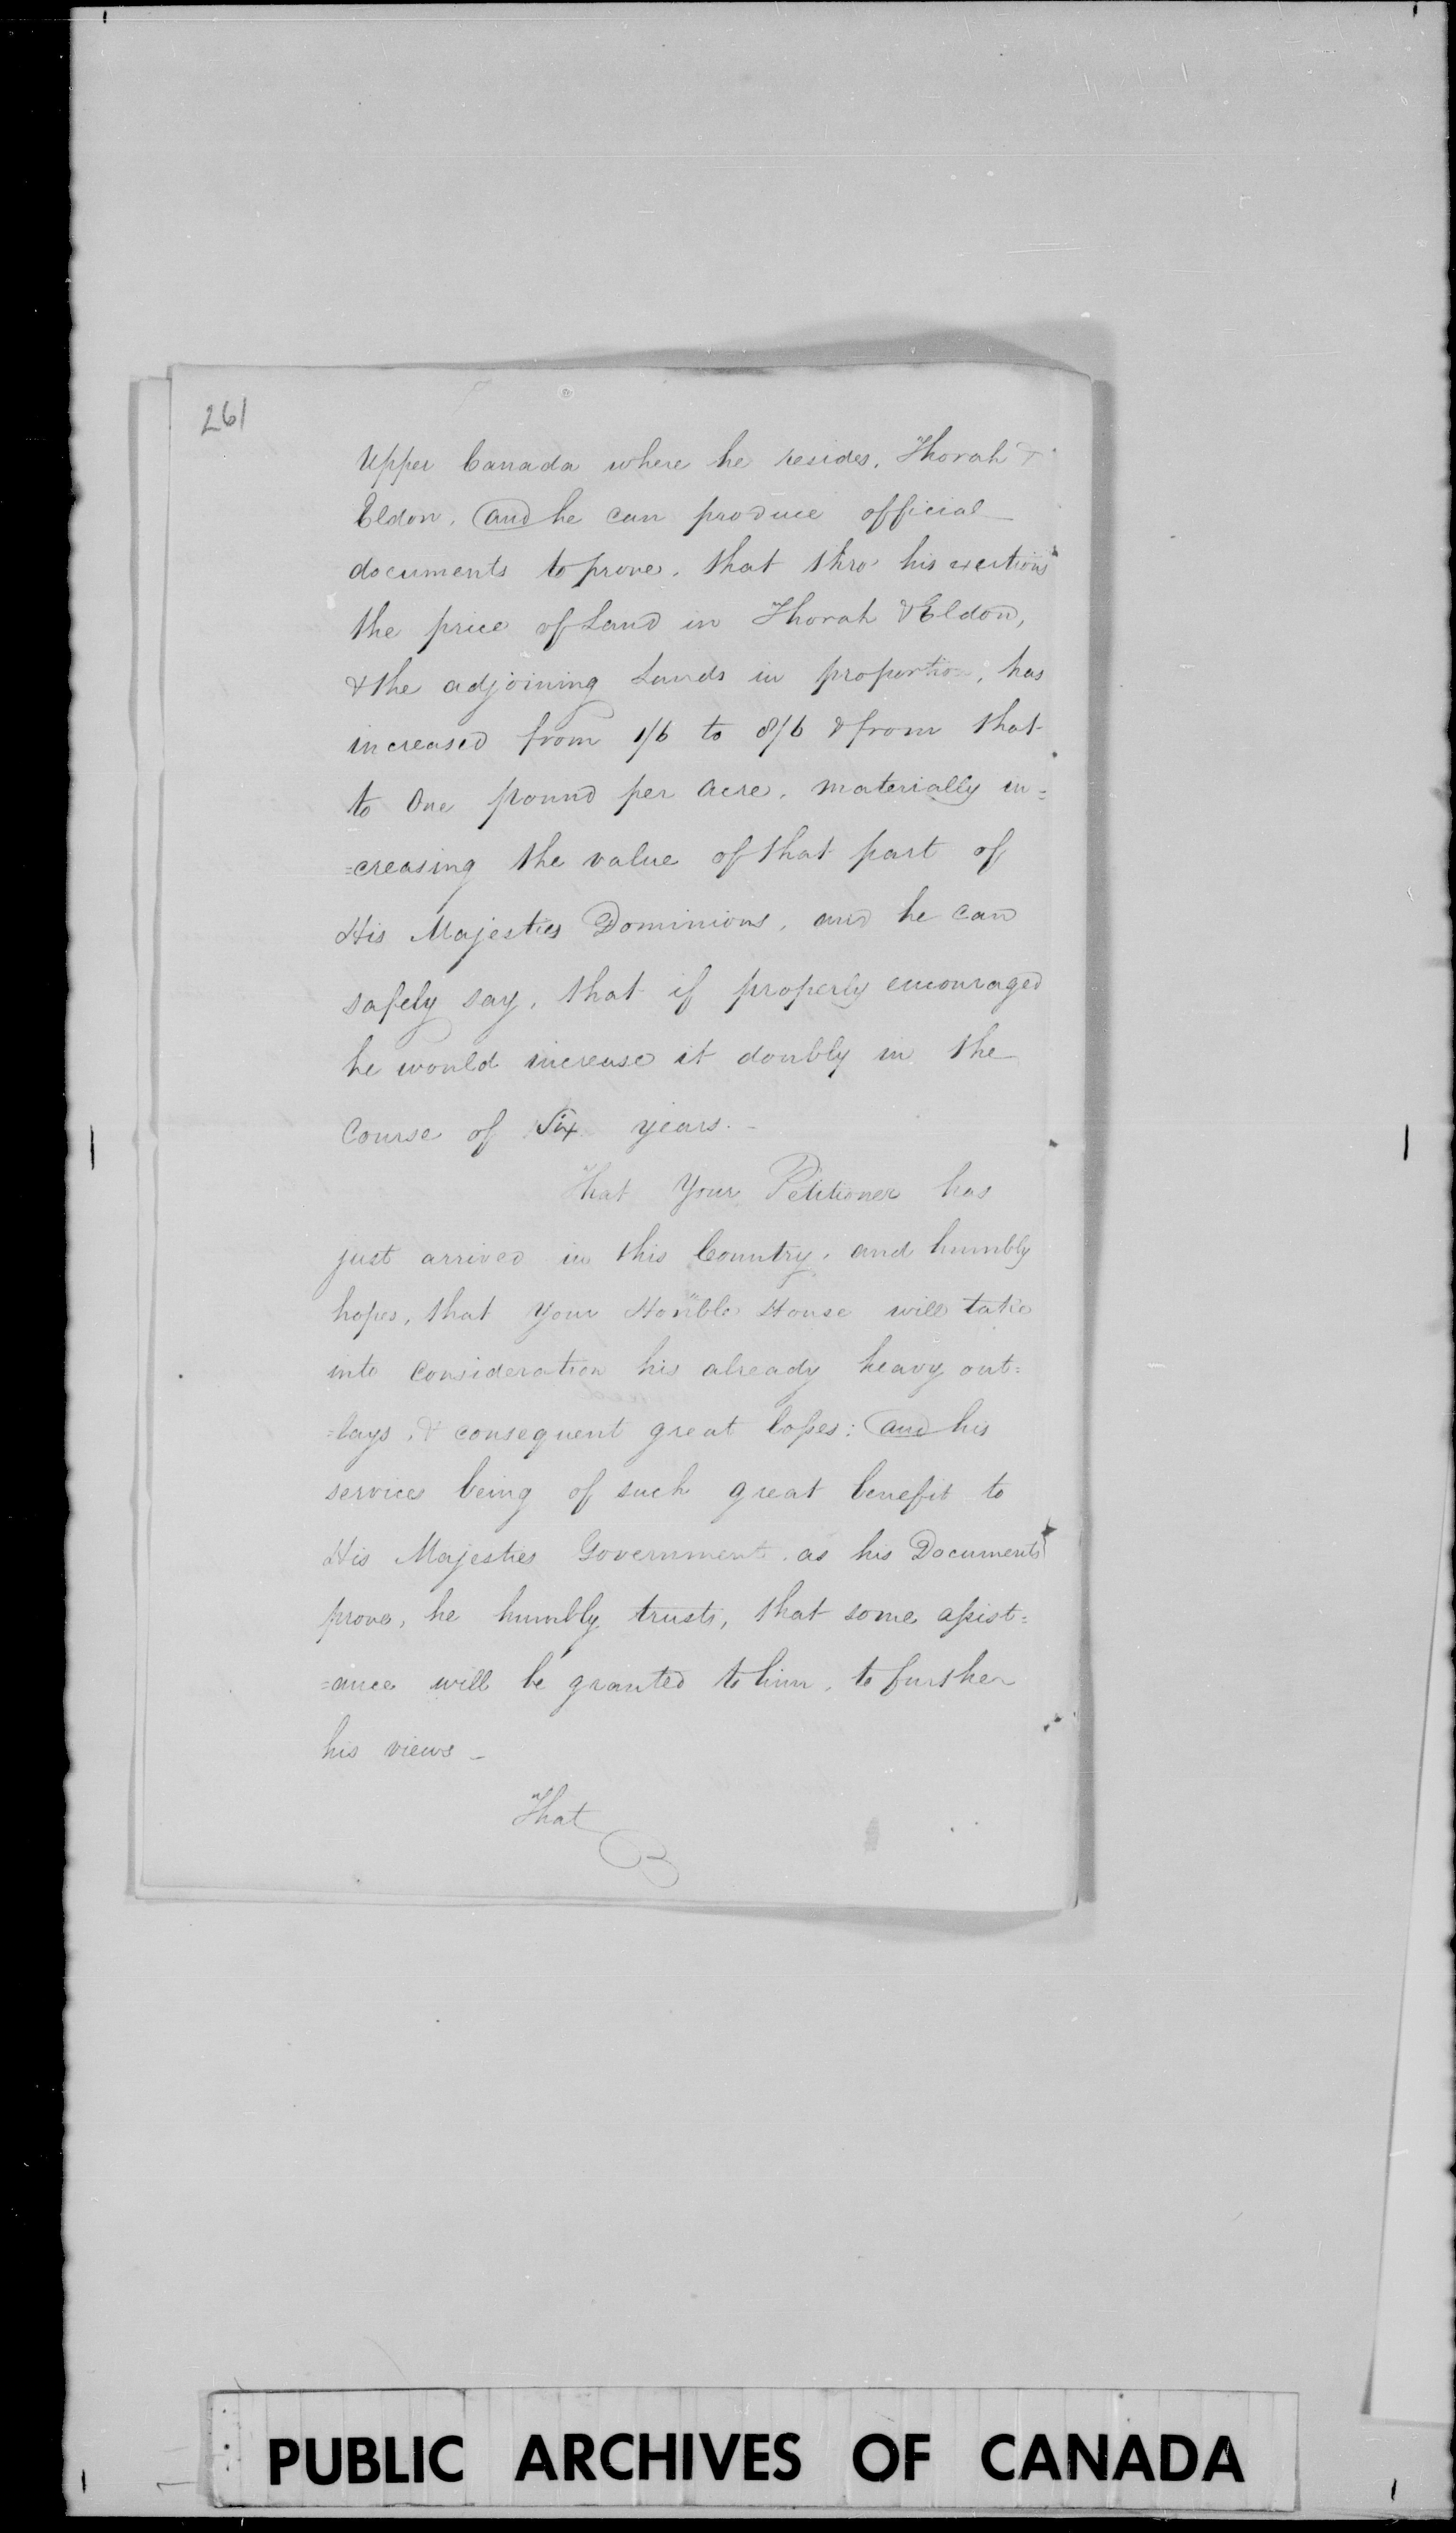 261
Upper Canada where he resides, Thorah &
Eldon, and he can produce official
documents to prove, that thro' his exertions
the price of Land in Thorah & Eldon,
& the adjoining Lands in proportion, has
increased from 1/6 to 8/6 & from that
to One pound per acre, materially in=
=creasing the value of that part of
His Majesties Dominions, and he can
safely say, that if properly encouraged
he would increase it doubly in the
Course of Six years.-
That Your Petitioner has
just arrived in this Country, and humbly
hopes, that Your Hon'ble House will take
into Consideration his already heavy out=
=lays, & consequent great losses: and his
services being of such great benefit to
His Majesties Government, as his Documents
prove, he humbly trusts, that some assist=
=ance will be granted to him, to further
his views -
That
PUBLIC ARCHIVES OF CANADA